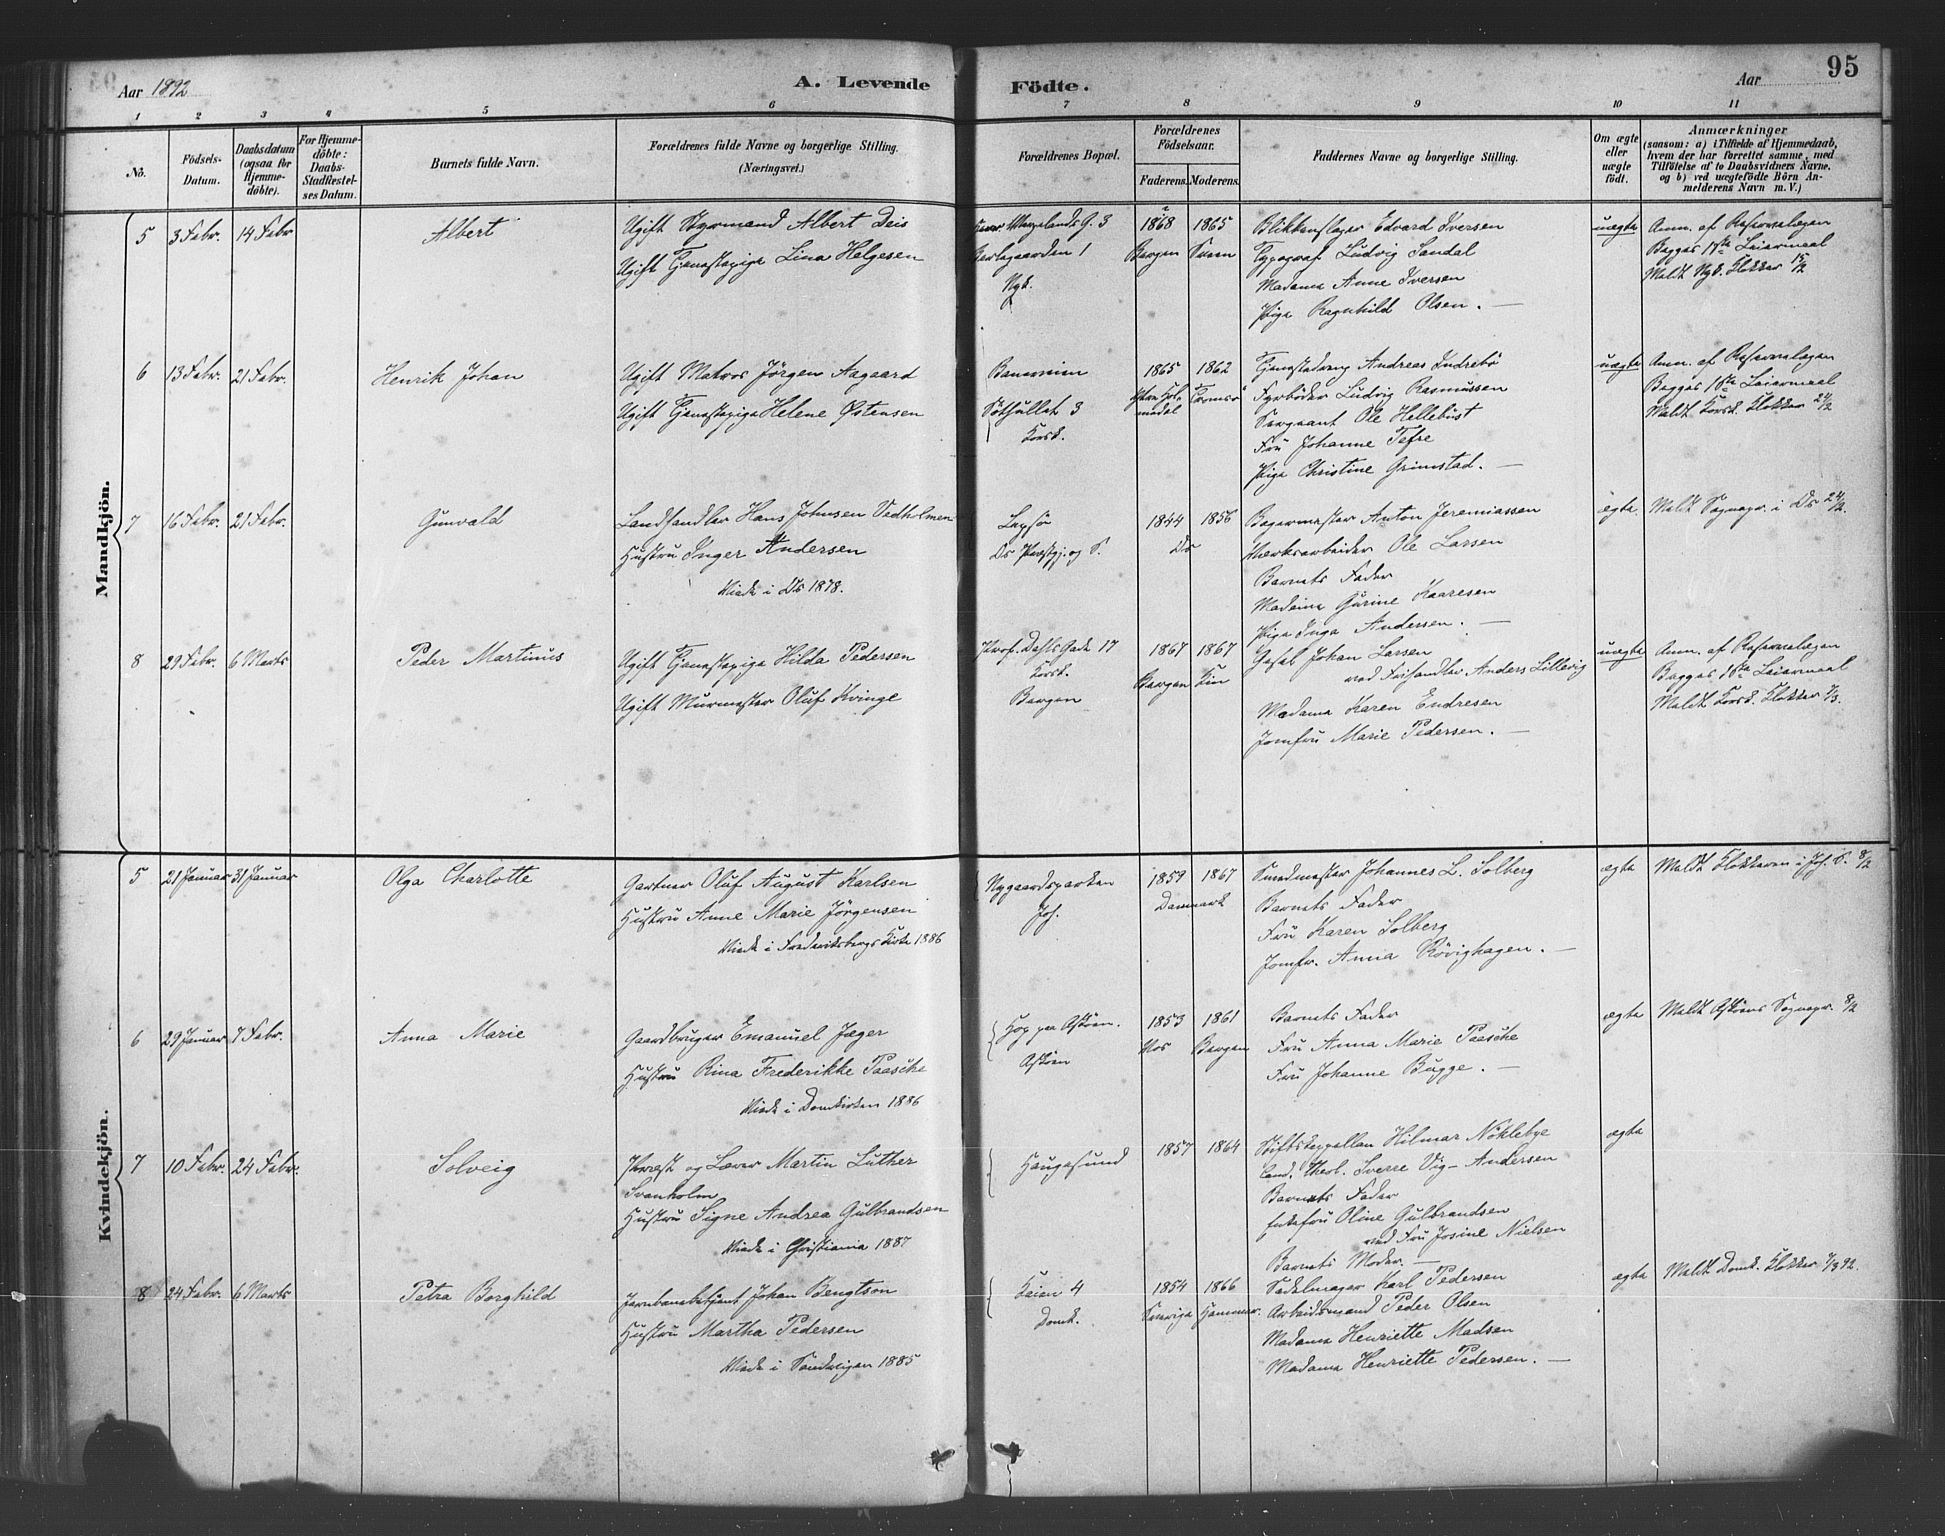 Aar 1892
A. Levende
Födte.
Aar
95
1 2 3 4 5 6 7 8 9 10 11
No.
Födsels-Datum.
Daabsdatum (ogsaa for Hjemme-döbte).
For Hjemme-döbte: Daabs-Stadfæstel-ses Datum.
Barnets fulde Navn.
Forældrenes fulde Navne og borgerlige Stilling. (Næringsvei.)
Forældrenes Bopæl.
Forældrenes Födselsaar.
Faderens. Moderens.
Faddernes Navne og borgerlige Stilling.
Om ægte eller uægte födt.
Anmærkninger
(saasom: a) i Tilfælde af Hjemmedaab,
hvem der har forrettet samme, med
Tilföielse af to Daabsvidners Navne.
og b) ved uægtefödte Börn An-
melderens Navn m. V.)
Mandkjön.
5 3 Febr. 14 Febr
Albert
Ugift Styrmand Albert Deis
Ugift Tjenestepige Lina Helgesen
Nyk.
1868 1865
Bergen
Blikkenslager Edvard Iversen
Typograf Ludvig Sandal
Madame Anne Iversen
Pige Ragnhild Olsen. —
uægte
Anm. af Reservelægen
Bagges 1ste Leiermaal
Meldt Nyk. Klokker 15/2
6 13 Febr. 21 Febr.
Henrik Johan
Ugift Matros Jörgen Aagaard
Ugift Tjenestepige Helene Østensen
Baneveien
Söthullet 3
Korsk.
1865 1862
Tromsö
Tjenestedreng Andreas Indrebö
Fyrböder Ludvig Rasmussen
Sergeant Ole Hellebust
Fru Johanne Tefre
Pige Christine Grimstad. —
uægte
Anm. af Reservelægen
Bagges 1ste Leiermaal
Meldt Korsk. Klokker 24/2
7 16 Febr. 21 Febr.
Gunvald
Landhandler Hans Johnsen Vedholmen
Hustru Inger Andersen
Viede i Ds 1878.
Lepsö
Ds Præstgj. og S.
1844 1856
Ds
Bagermester Anton Jeremiassen
Værksarbeider Ole Larsen
Barnets Fader
Madame Gurine Kaaresen
Pige Inga Andersen. —
ægte.
Meldt Sognepr. i Ds 24/2.
8 29 Febr. 6 Marts
Peder Martinus
Ugift Tjenestepige Hilda Pedersen
Ugift Murmester Oluf Kvinge
Prof. Dahls Gade 17
Korsk.
Bergen
1867 1867
Bergen Kin
Johan Larsen
ved Anders Lillevig
Madame Karen Endresen
Jomfru Marie Pedersen. —
uægte
Anm. af Reservelægen
Bagges 1ste Leiermaal
Meldt Korsk. Klokker 7/3.
Kvindekjön.
5 21 Januar 31 Januar
Olga Charlotte
Gartner Oluf August Karlsen
Hustru Anne Marie Jörgensen
Viede i Frederiksbergs Kirke 1886
Nygaardsparken
Joh.
1859 1867
Danmark
Smedmester Johannes L. Solberg
Barnets Fader
Fru Karen Solberg
Jomfr. Anna Rövighagen. —
ægte
Meldt Klokkeren i Joh. S. 8/2
6 29 Januar 7 Febr.
Anna Marie
Gaardbruger Emanuel Jæger
Hustru Rina Frederikke Paasche
Viede i Domkirken 1886
Hop per Askøen.
Askøen
1853 1861
Bergen
Barnets Fader
Fru Anna Marie Paasche
Fru Johanne Bugge. —
ægte
Meldt Askøens Sognepr. 8/2
7 10 Febr. 24 Febr.
Solveig
Præst og Lærer Martin Luther
Svanholm
Hustru Signe Andrea Gulbrandsen
Viede i Christiania 1887
Haugesund
1857 1864
Stiftskapellan Hilmar Nöklebye
Cand. theol. Sverre Vig-Andersen
Barnets Fader
Enkefru Oline Gulbrandsen
ved Fru Josine Nielsen
Barnets Moder. —
ægte
8 24 Febr. 6 Marts
Petra Borghild
Jernbanebetjent Johan Bengtson
Hustru Martha Pedersen
Viede i Sandvigen 1885
Kaien 4
Domk.
1854 1866
Sverige Hammer.
Sadelmager Karl Pedersen
Arbeidsmand Peder Olsen
Madame Henriette Madsen
Madame Henriette Pedersen. —
ægte
Meldt Domk. Klokker 7/3 92.